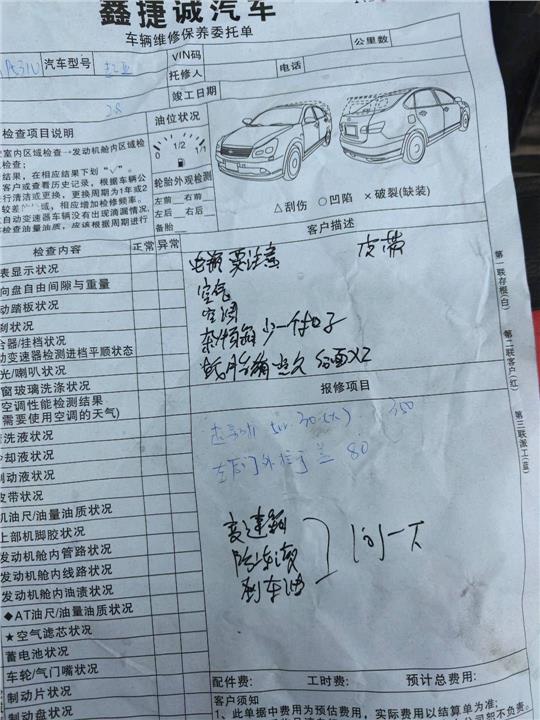 鑫捷诚汽车
车辆维修保养委托单
公里数
汽车型号
VIN码
托修人
电话
竣工日期
28
检查项目说明
油位状况
1/2
1/1
轮胎外观检测
左前 右前
左后 右后
备胎
△刮伤 ○凹陷 ×破裂(缺装)
室内区域检查→发动机舱内区域检
检查:
结果，在相应结果下划"√"。
客户或查看历史记录，根据车辆公
行清洁或更换，更换周期为1年或2
域，相应增加检修频率。
自动变速器车辆没有出现滴漏情况
检查油量油质，应该根据周期进行
检查内容 正常 异常
客户描述
电瓶 要注意 皮带
空气
空调
少一个扣子
表显示状况
向盘自由间隙与重量
动踏板状况
刷状况
合器/挂档状况
动变速器检测进档平顺状态
光/喇叭状况
窗玻璃洗涤状况
空调性能检测结果
需要使用空调的天气)
洗液状况
却液状况
制动液状况
皮带状况
机油尺/油量油质状况
上部机脚胶状况
发动机舱内管路状况
发动机舱内线路状况
发动机舱内油渍状况
◆AT油尺/油量油质状况
★空气滤芯状况
蓄电池状况
车轮/气门嘴状况
制动片状况
制动盘状况
报修项目
350
80
变速箱
防冻液
刹车油
问一下
第一联存根(白)
第二联客户(红)
第三联派工(蓝)
配件费: 工时费: 预计总费用:
客户须知
1、此单据中费用为预估费用，实际费用以结算单为准;